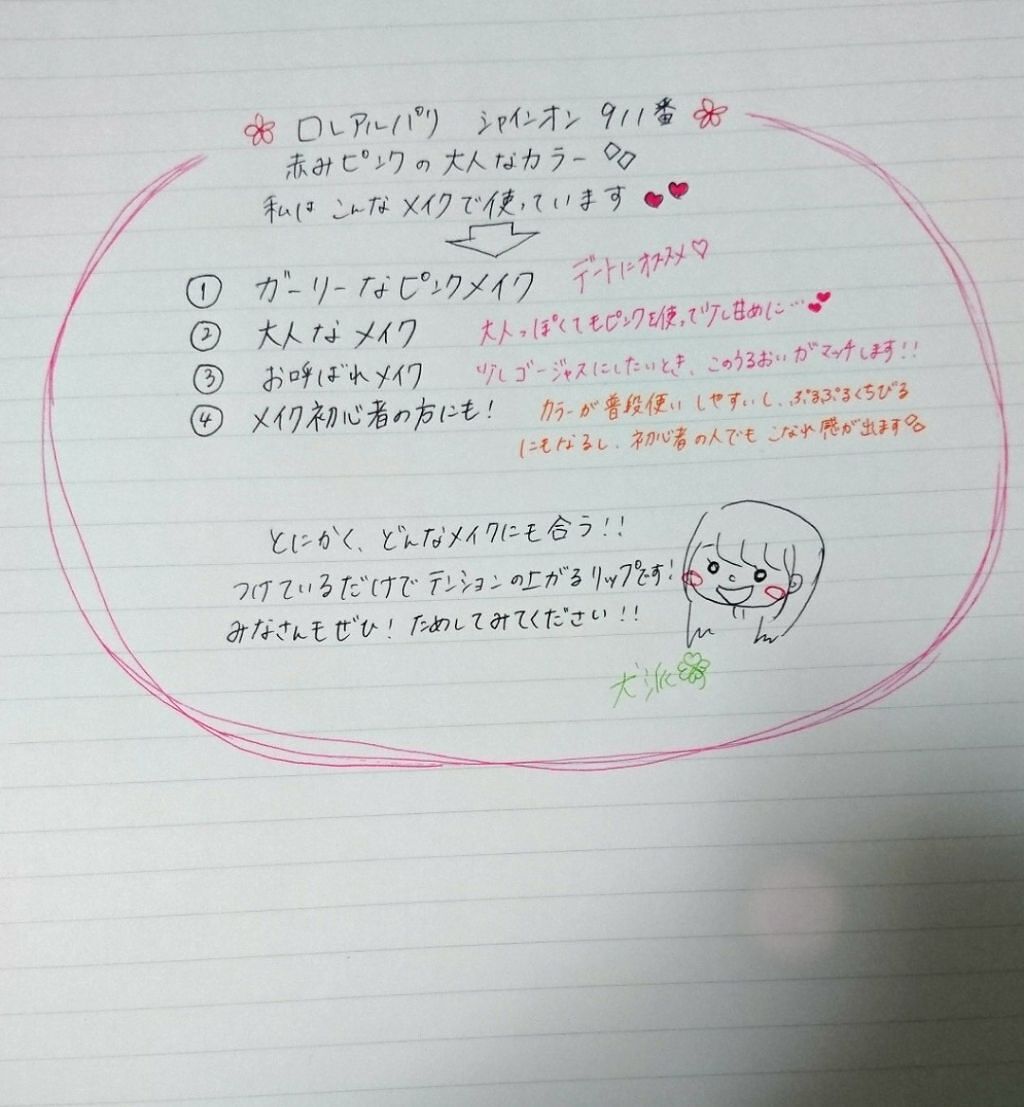 ロレアルパリ シャインオン 911番
赤みピンクの大人なカラー
私は こんな メイクで使っています
① ガーリーなピンクメイク デートにオススメ♡
② 大人なメイク 大人っぽくてもピンクを使って少し甘めに…
③ お呼ばれメイク 少しゴージャスにしたいとき、このうるおいがマッチします!!
④ メイク初心者の方にも! カラーが普段使いしやすいし、ぷるぷるくちびる
にもなるし、初心者の人でもこなれ感が出ます
とにかく、どんなメイクにも合う!!
つけているだけでテンションの上がるリップです!
みなさんもぜひ! ためしてみてください!!
犬派